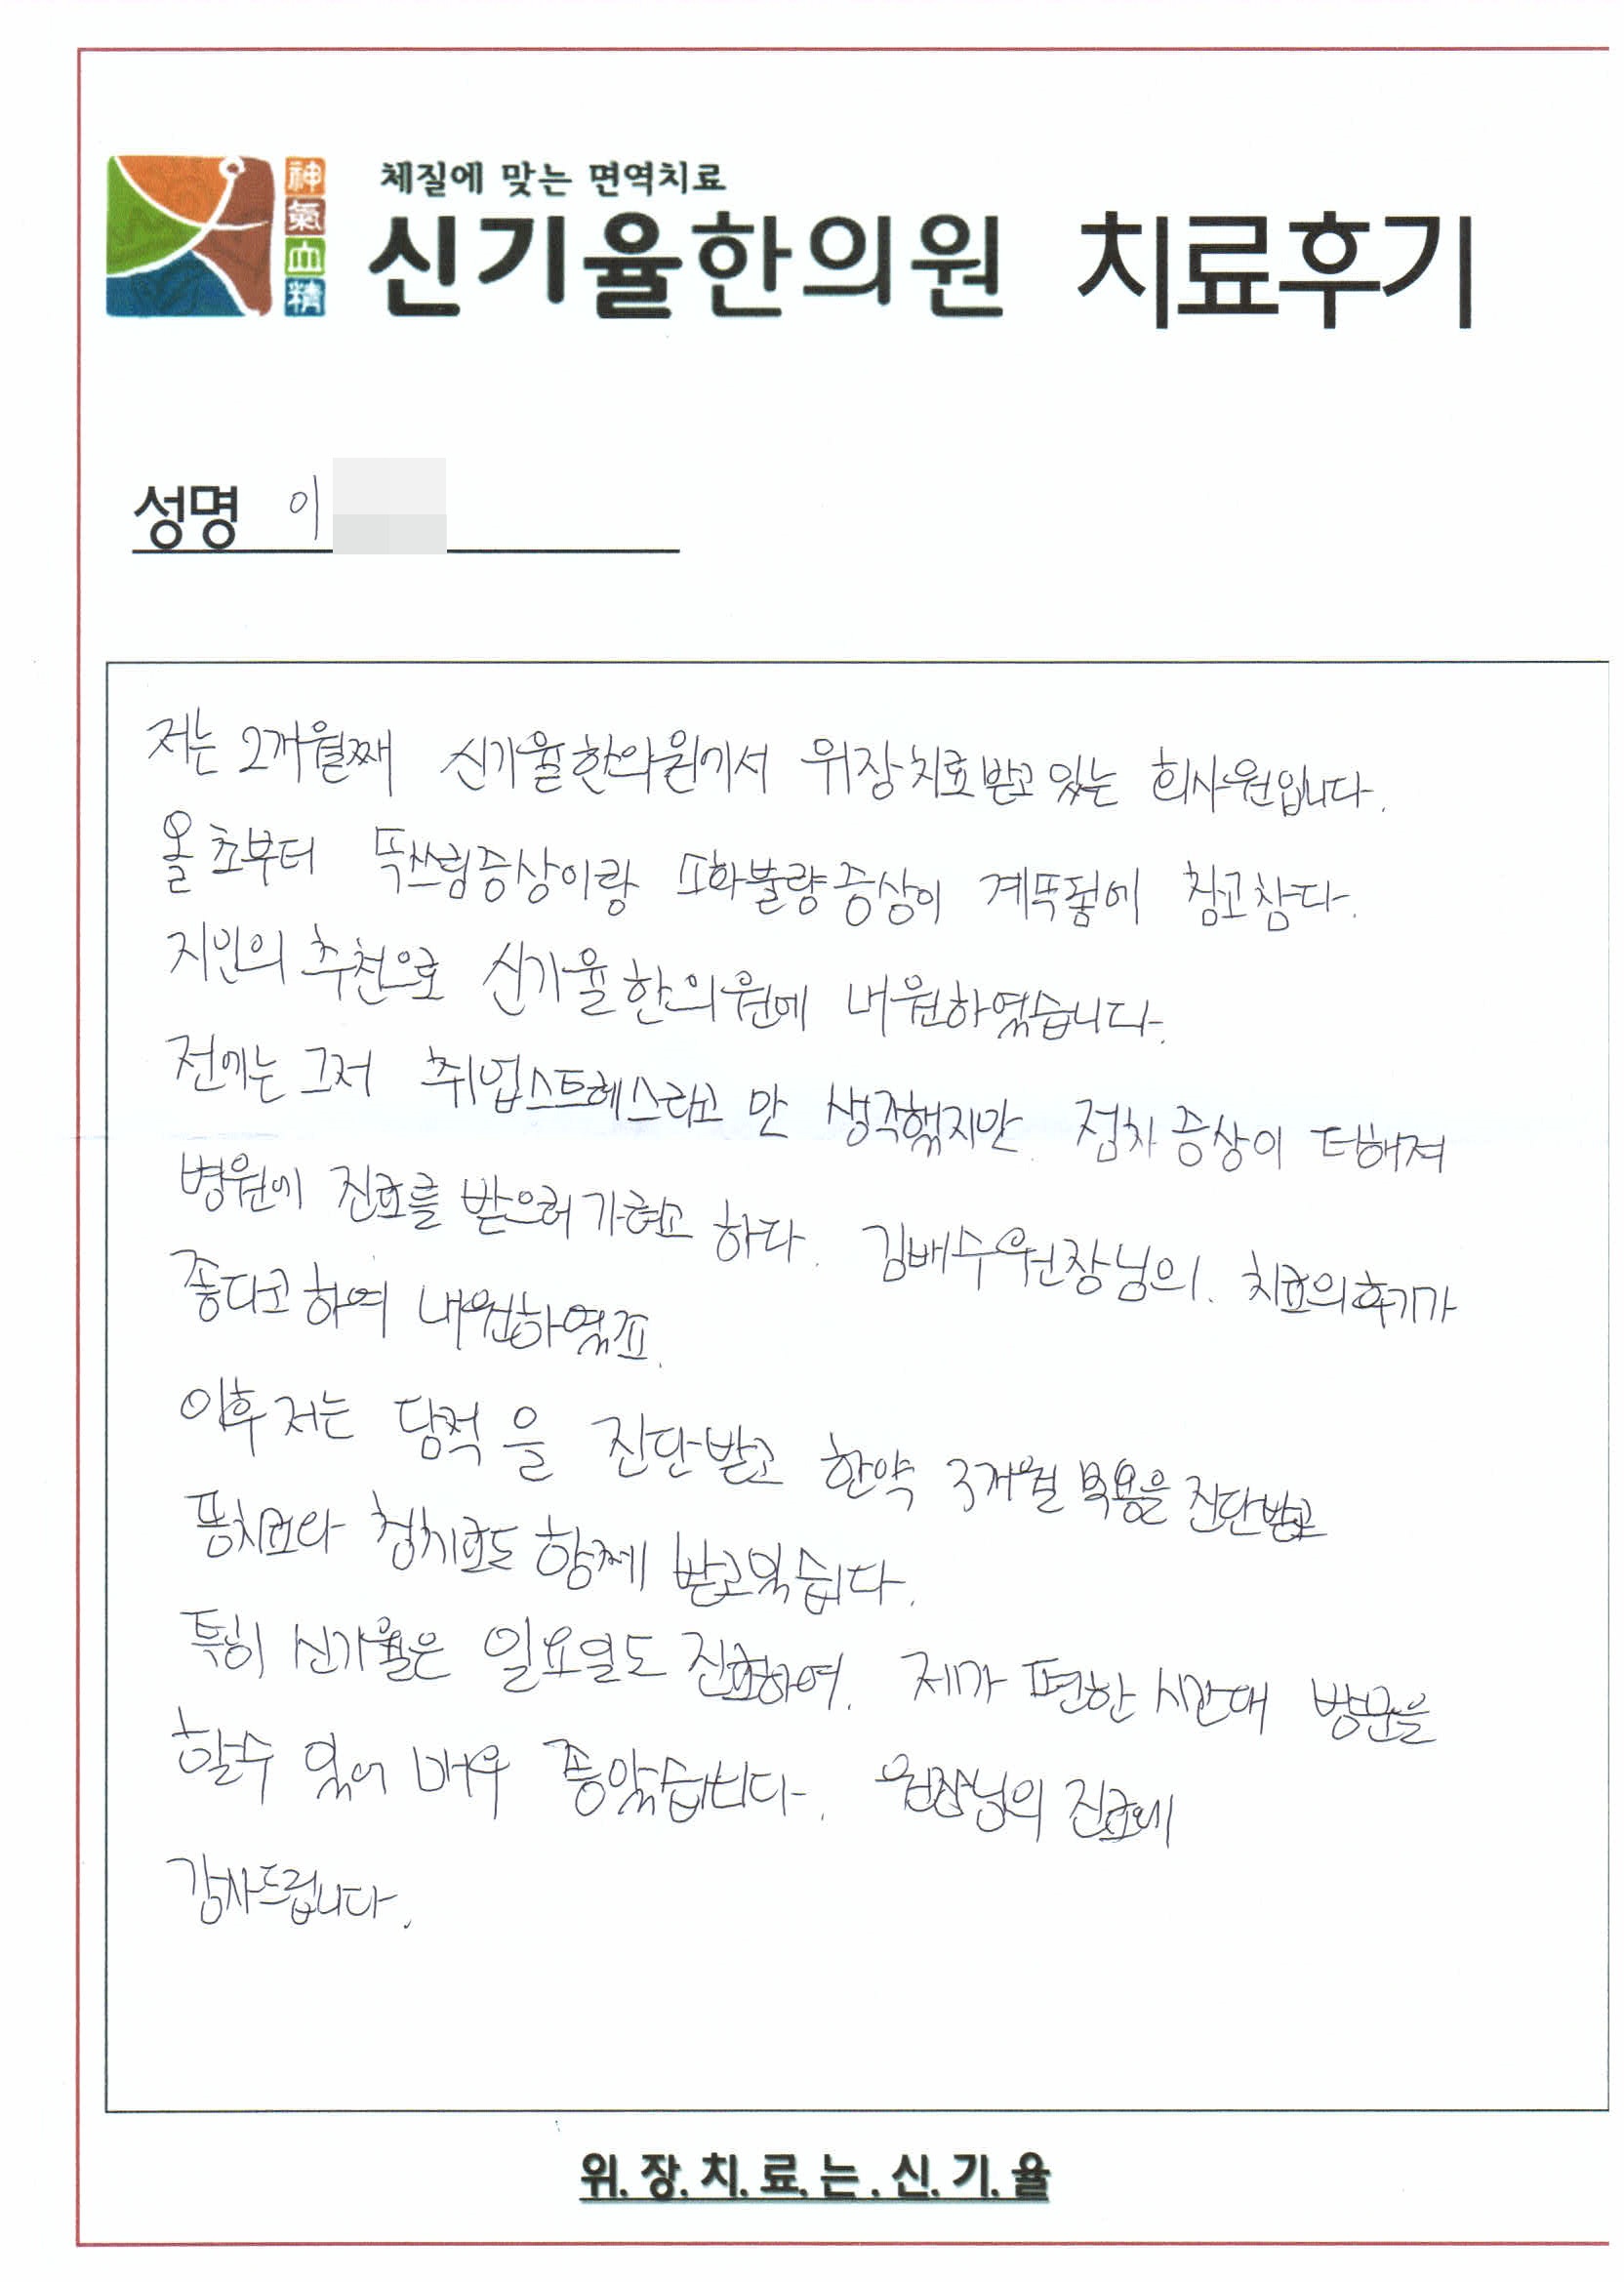 神
氣
血
精
체질에 맞는 면역치료
신기율한의원 치료후기
성명 이
저는 2개월째 신기율한의원에서 위장치료받고 있는 회사원입니다.
올 초부터 속쓰림증상이랑 소화불량증상이 계속됨에 참고참다.
지인의 추천으로 신기율한의원에 내원하였습니다.
전에는 그저 취업스트레스라고 만 생각했지만 점차 증상이 더해져
병원에 진료를 받으러 가려고 하다. 김배수원장님의. 치료의후기가
좋다고하여 내원하였죠.
이후 저는 담적 을 진단받고 한약 3개월 복용을 진단받고
통치료와 침치료도 함께 받고있습다.
특히 신기율은 일요일도 진료하여. 제가 편한 시간대 방문을
할수 있어 매우 좋았습니다. 원장님의 진료에
감사드립니다.
위.장.치.료.는.신.기.율